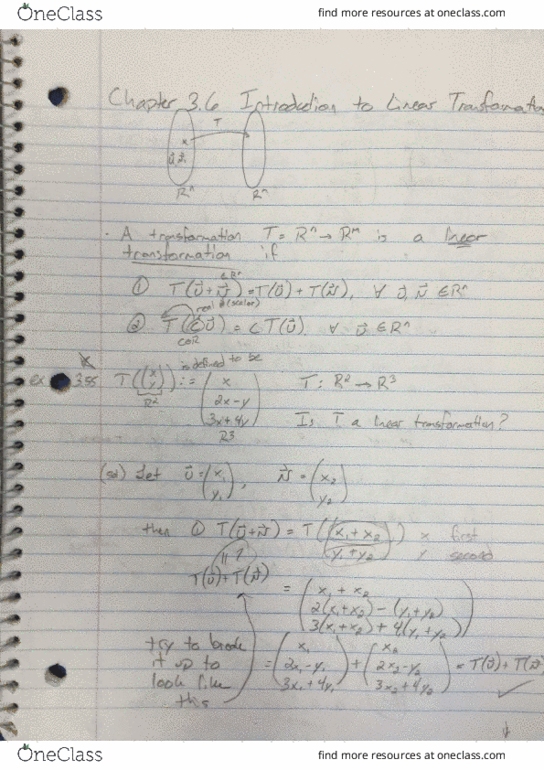 OneClass find more resources at oneclass.com
Chapter 3.6 Introduction to Linear Transformation
T
x
Rⁿ Rⁿ
· A transformation T = Rⁿ → Rᵐ is a linear
transformation if
∈Rⁿ
① T(u⃗+v⃗) = T(u⃗) + T(v⃗), ∀ u⃗, v⃗ ∈ Rⁿ
real #(scalar)
② T(cu⃗) = cT(u⃗) ∀ u⃗ ∈ Rⁿ
c∈R
is defined to be
ex 3.55 T((x y)) := (x 2x-y 3x+4y) T: R² → R³
R² R3
Is T a linear transformation?
(sol) Let u⃗ = (x₁ y₁), v⃗ = (x₂ y₂)
then ① T(u⃗+v⃗) = T((x₁+x₂ y₁+y₂)) x first
y second
|| ?
T(u⃗)+T(v⃗)
= (x₁+x₂ 2(x₁+x₂) - (y₁+y₂) 3(x₁+x₂) + 4(y₁+y₂))
try to break
it up to
look like
this
= (x₁ 2x₁-y₁ 3x₁+4y₁) + (x₂ 2x₂-y₂ 3x₂+4y₂) = T(u⃗)+T(v⃗)
✓
OneClass find more resources at oneclass.com